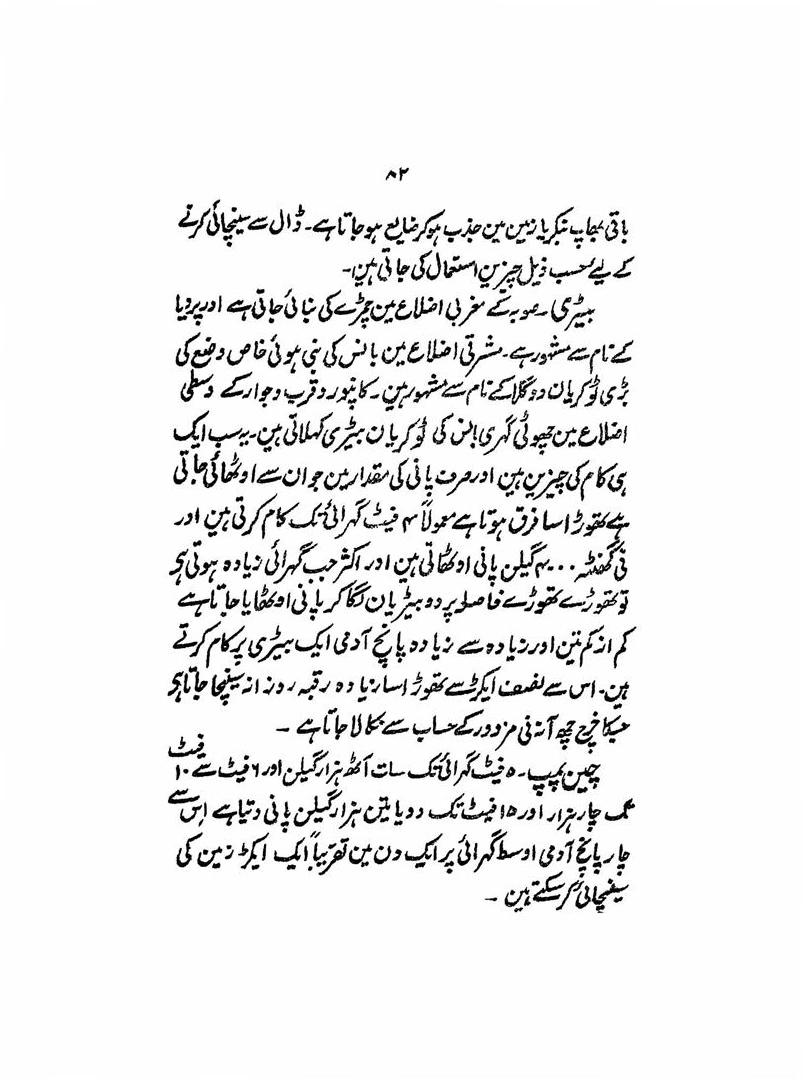 ۸۲
باقی بھاپ بنکر یا زمین مین جذب ہو کر ضایع ہو جاتا ہے۔ ڈال سے سینچائی کرنے
کے لیے حسب ذیل چیزین استعمال کی جاتی ہین۔
بیڑی۔ صوبہ کے مغربی اضلاع مین چمڑے کی بنائی جاتی ہے اور پرویا
کے نام سے مشہور ہے۔ مشرقی اضلاع مین بانس کی بنی ہوئی خاص وضع کی
بڑی ٹوکریان دوگلا کے نام سے مشہور ہین۔ کانپور و قرب و جوار کے وسطی
اضلاع مین چھوٹی گہری بانس کی ٹوکریان بیڑی کہلاتی ہین۔ یہ سب ایک
ہی کام کی چیزین ہین اور صرف پانی کی مقدار مین جو ان سے اوٹھائی جاتی
ہے تھوڑا سا فرق ہوتا ہے معمولاً ۴ فیٹ گہرائی تک کام کرتی ہین اور
فی گھنٹہ ۴۰۰۰ گیلن پانی اوٹھاتی ہین اور اکثر جب گہرائی زیادہ ہوتی ہی
تو تھوڑے تھوڑے فاصلہ پر دو بیڑیان لگا کر پانی اوٹھایا جاتا ہے
کم از کم تین اور زیادہ سے زیادہ پانچ آدمی ایک بیڑی پر کام کرتے
ہین۔ اس سے نصف ایکڑ سے تھوڑا سا زیادہ رقبہ روزانہ سینچا جاتا ہی
جسکا خرچ چھہ آنہ فی مزدور کے حساب سے نکالا جاتا ہے ۔
چین پمپ۔ ۵ فیٹ گہرائی تک سات آٹھ ہزار گیلن اور ۶ فیٹ سے ۱۰ فیٹ
تک چار ہزار اور ۱۵ فیٹ تک دو یا تین ہزار گیلن پانی دیتا ہے اس سے
چار پانچ آدمی اوسط گہرائی پر ایک دن مین تقریباً ایک ایکڑ زمین کی
سینچائی کر سکتے ہین ۔